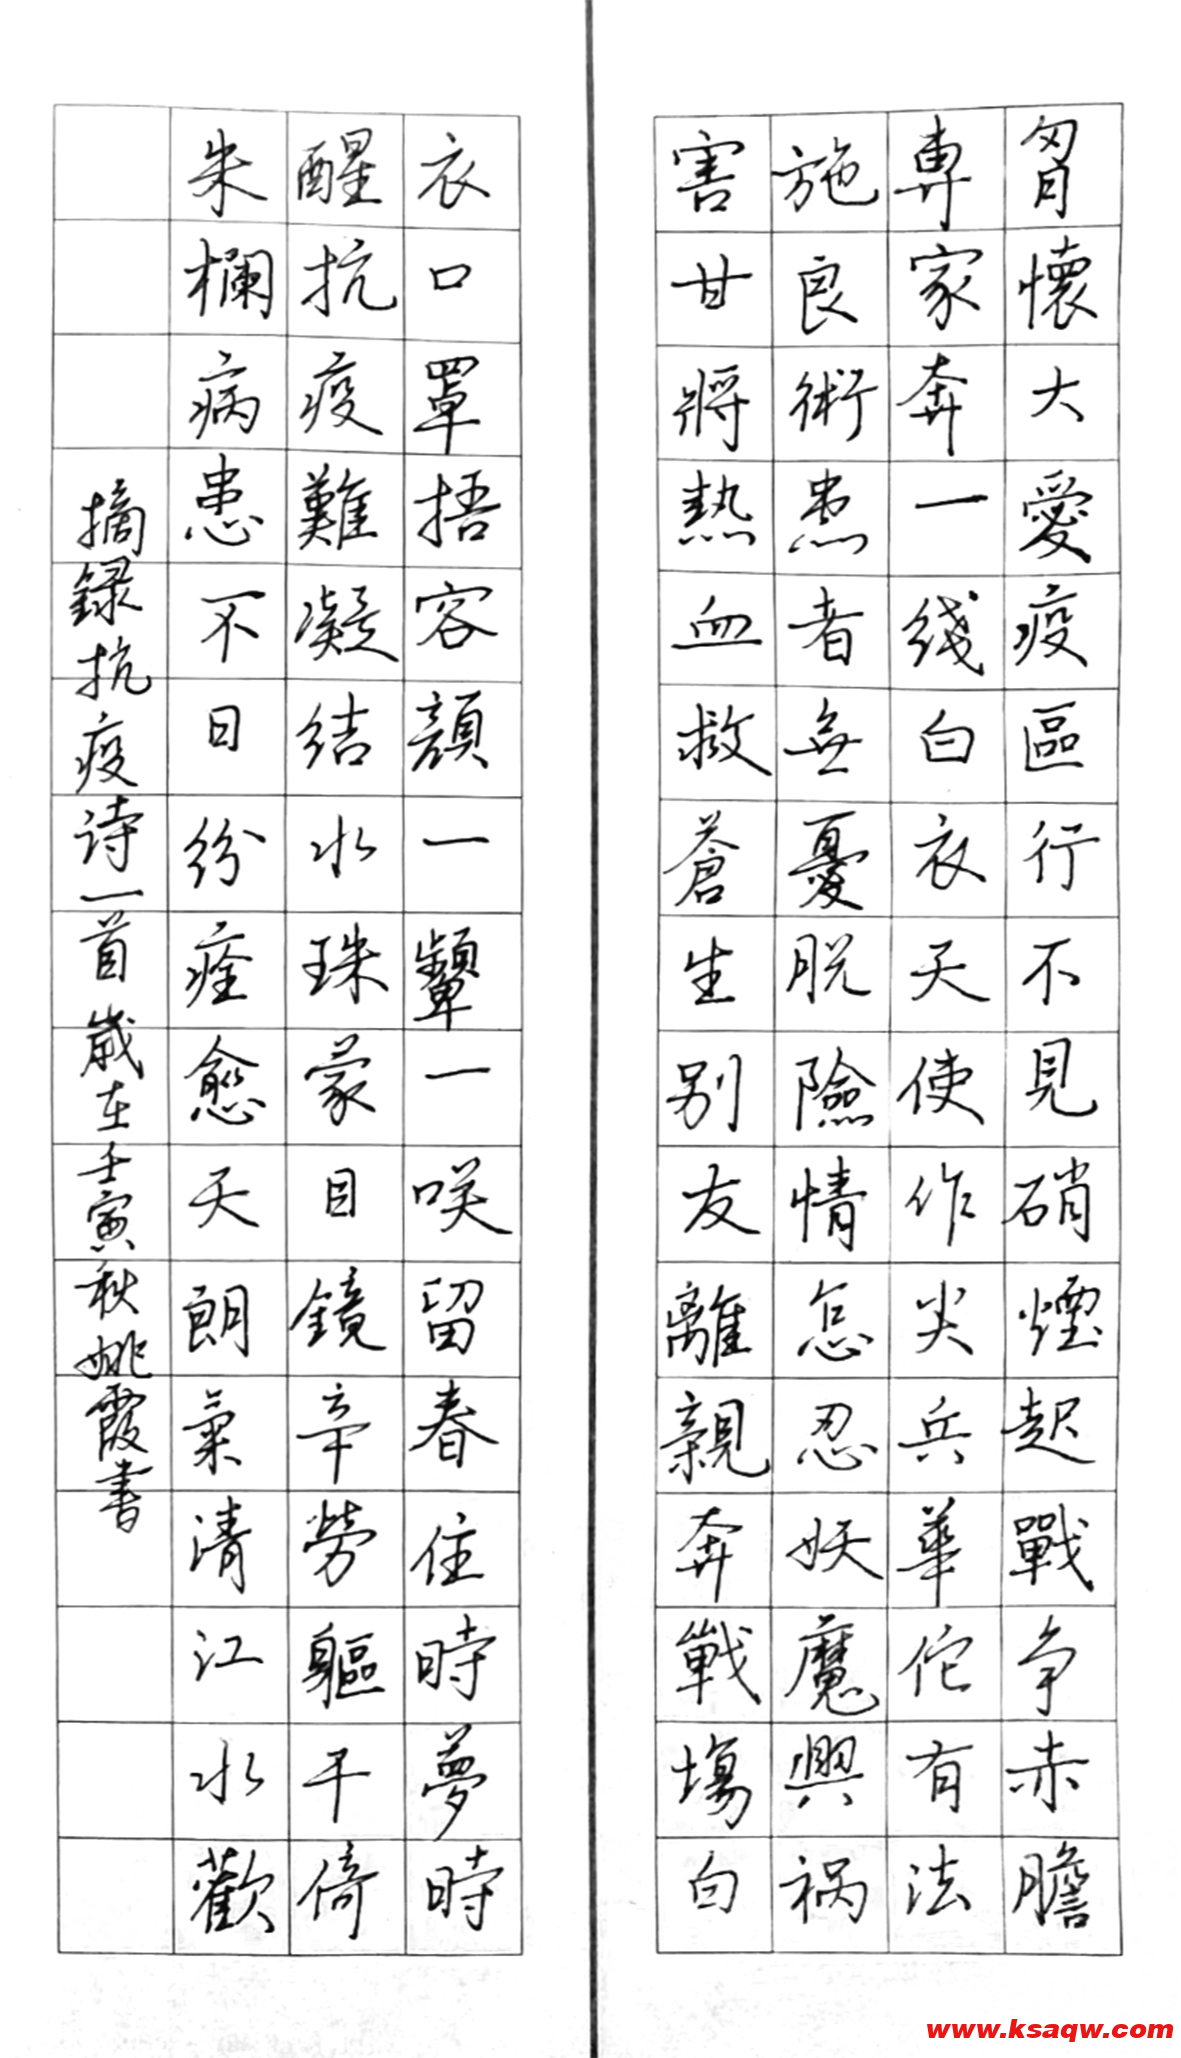 胷懷大愛疫區行不見硝煙起戰争赤膽
專家奔一线白衣天使作尖兵華佗有法
施良術患者無憂脱險情怎忍妖魔興祸
害甘將熱血救蒼生别友離親奔戰場白
衣口罩捂容顔一顰一咲留春住時夢時
醒抗疫難凝结水珠蒙目鏡辛勞軀干倚
朱欄病患不日纷痊愈天朗氣清江水歡
摘録抗疫诗一首歲在壬寅秋姚霞書
www.ksaqw.com